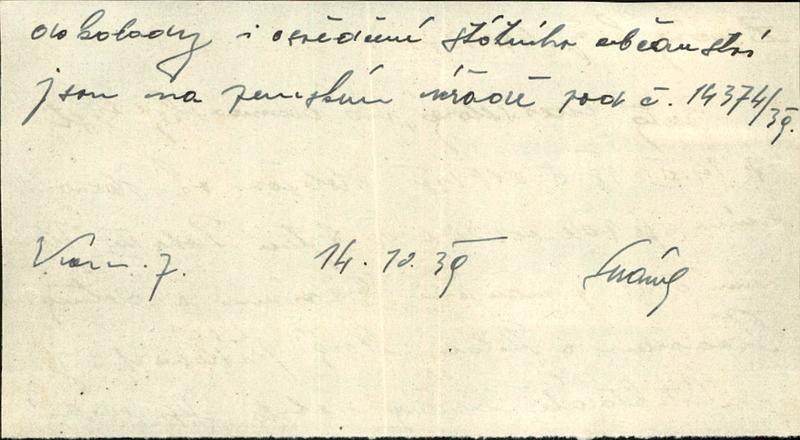 doklady i osvědčení státního občanství
jsou na zemském úřadě pod č. 14374/39.
14. 10. 39